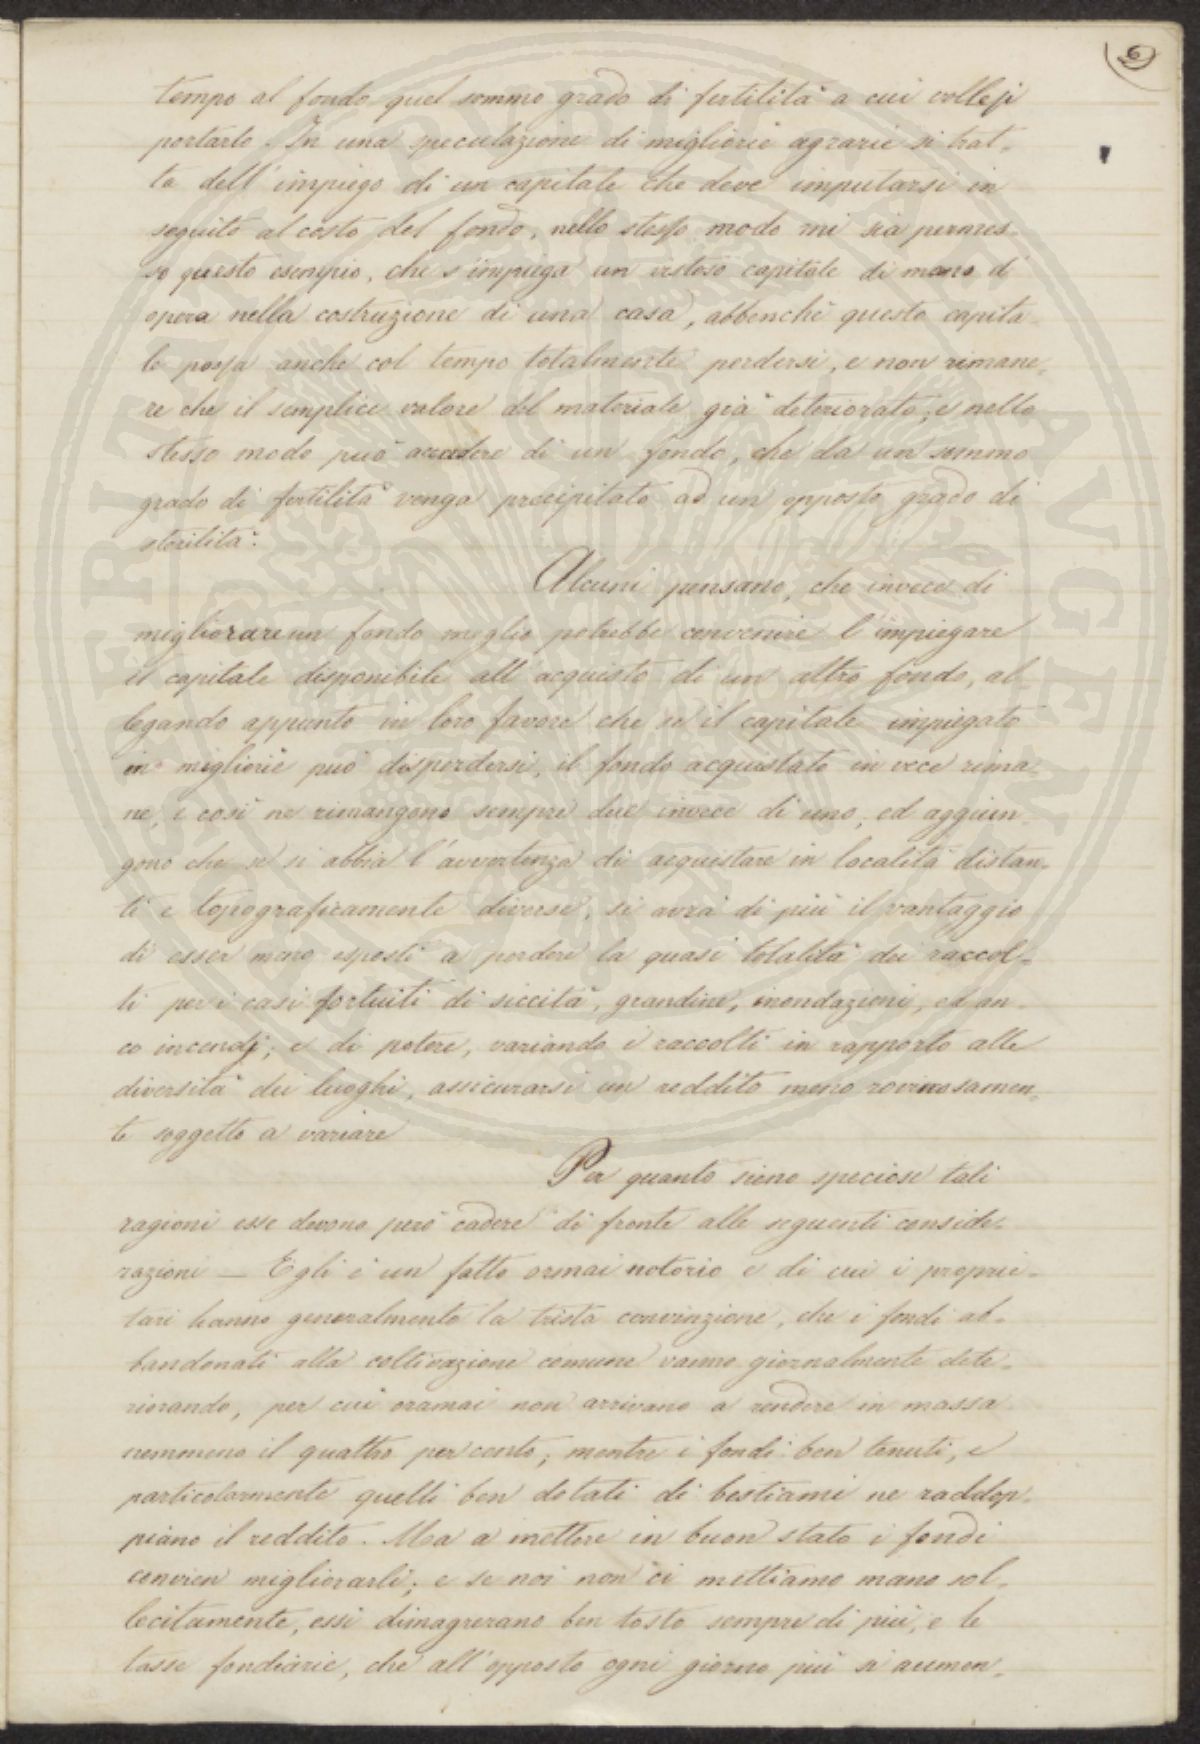 6
tempo al fondo quel sommo grado di fertilità a cui vollesi
portarlo. In una speculazione di migliorie agrarie si trat-
ta dell'impiego di un capitale che deve imputarsi in
seguito al costo del fondo, nello stesso modo mi sia permes-
so questo esempio, che s'impiega un vistoso capitale di mano d'
opera nella costruzione di una casa, abbenchè questo capita-
le possa anche col tempo totalmente perdersi, e non rimane-
re che il semplice valore del materiale già deteriorato; e nello
stesso modo può accadere di un fondo, che da un sommo
grado di fertilità venga precipitato ad un opposto grado di
sterilità.
Alcuni pensano, che invece di
migliorare un fondo meglio potrebbe convenire l'impiegare
il capitale disponibile all'acquisto di un altro fondo, al-
legando appunto in loro favore che se il capitale impiegato
in migliorie può disperdersi, il fondo acquistato in vece rima-
ne, e così ne rimangono sempre due invece di uno, ed aggiun-
gono che se si abbia l'avvertenza di acquistare in località distan-
ti e topograficamente diverse, si avrà di più il vantaggio
di esser meno esposti a perdere la quasi totalità dei raccol-
ti per i casi fortuiti di siccità, grandine, inondazioni, ed an-
co incendj; e di potere, variando i raccolti in rapporto alle
diversità dei luoghi, assicurarsi un reddito meno rovinosamen-
te soggetto a variare
Per quanto sieno speciose tali
ragioni esse devono però cadere di fronte alle seguenti conside-
razioni — Egli è un fatto ormai notorio e di cui i proprie-
tari hanno generalmente la trista convinzione, che i fondi ab-
bandonati alla coltivazione comune vanno giornalmente dete-
riorando, per cui oramai non arrivano a rendere in massa
nemmeno il quattro per cento; mentre i fondi ben tenuti, e
particolarmente quelli ben dotati di bestiami ne raddop-
piano il reddito. Ma a mettere in buon stato i fondi
convien migliorarli; e se noi non ci mettiamo mano sol-
lecitamente, essi dimagrerano ben tosto sempre di più, e le
tasse fondiarie, che all'opposto ogni giorno più si aumen-